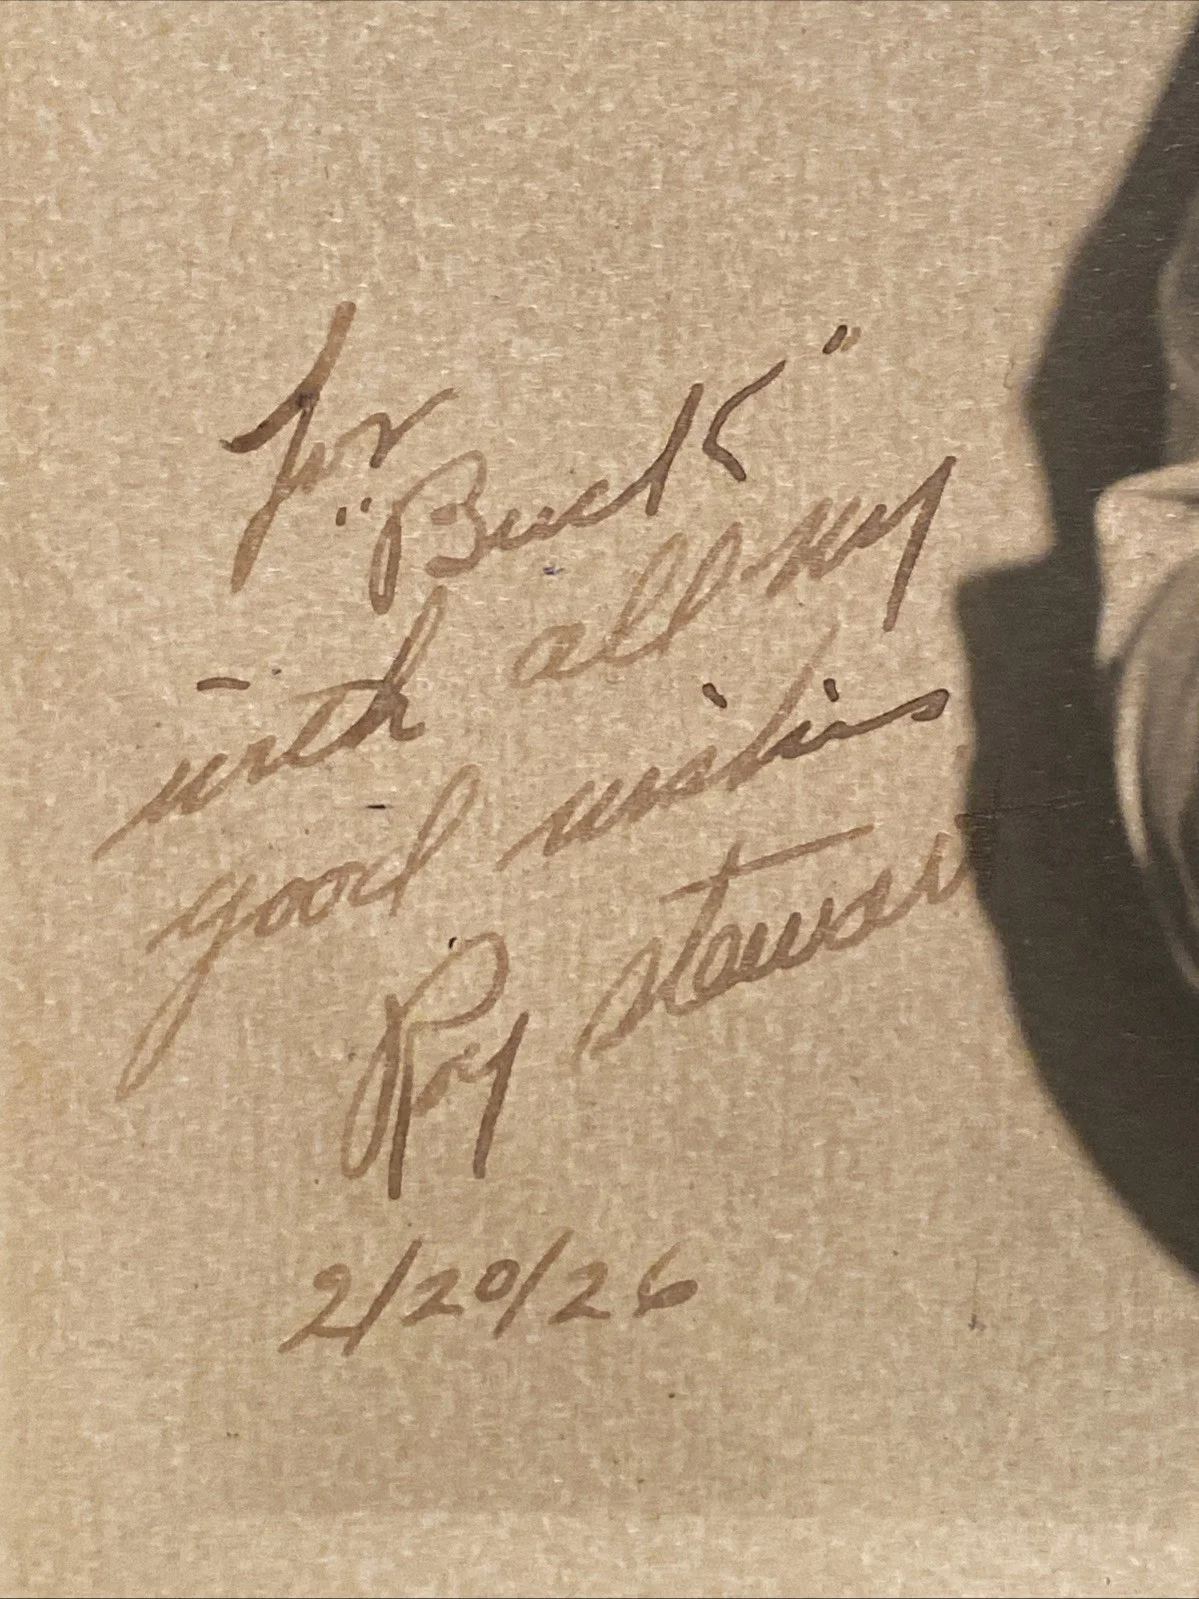 For
"Buck"
with all my
good wishes
Roy Stewart
2/20/26